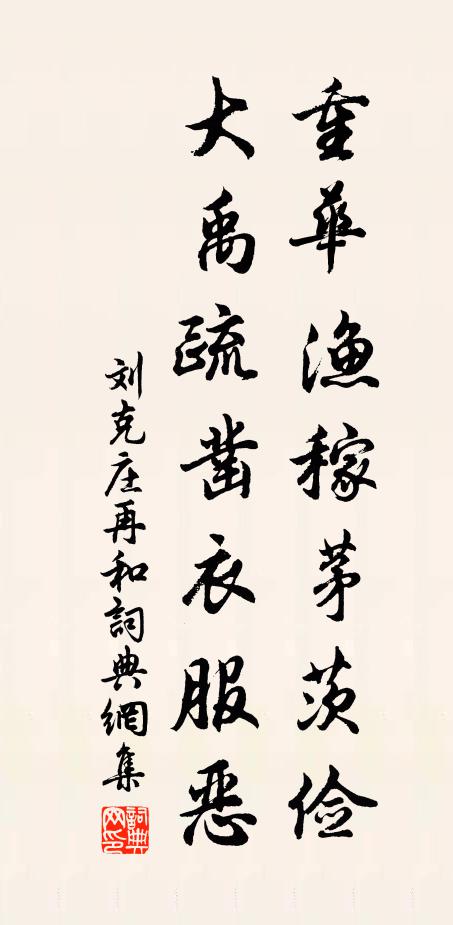 重華漁稼茅茨俭
大禹疏凿衣服恶
刘克庄再和詞典網集
詞典网印